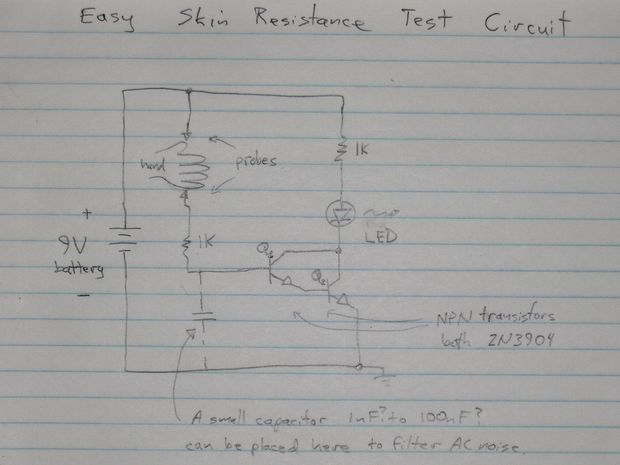 Easy Skin Resistance Test Circuit
hand
probes
1K
+
9V
battery
-
1K
LED
Q1
Q2
NPN transistors
both 2N3904
A small capacitor 1nF? to 100nF?
can be placed here to filter AC noise.